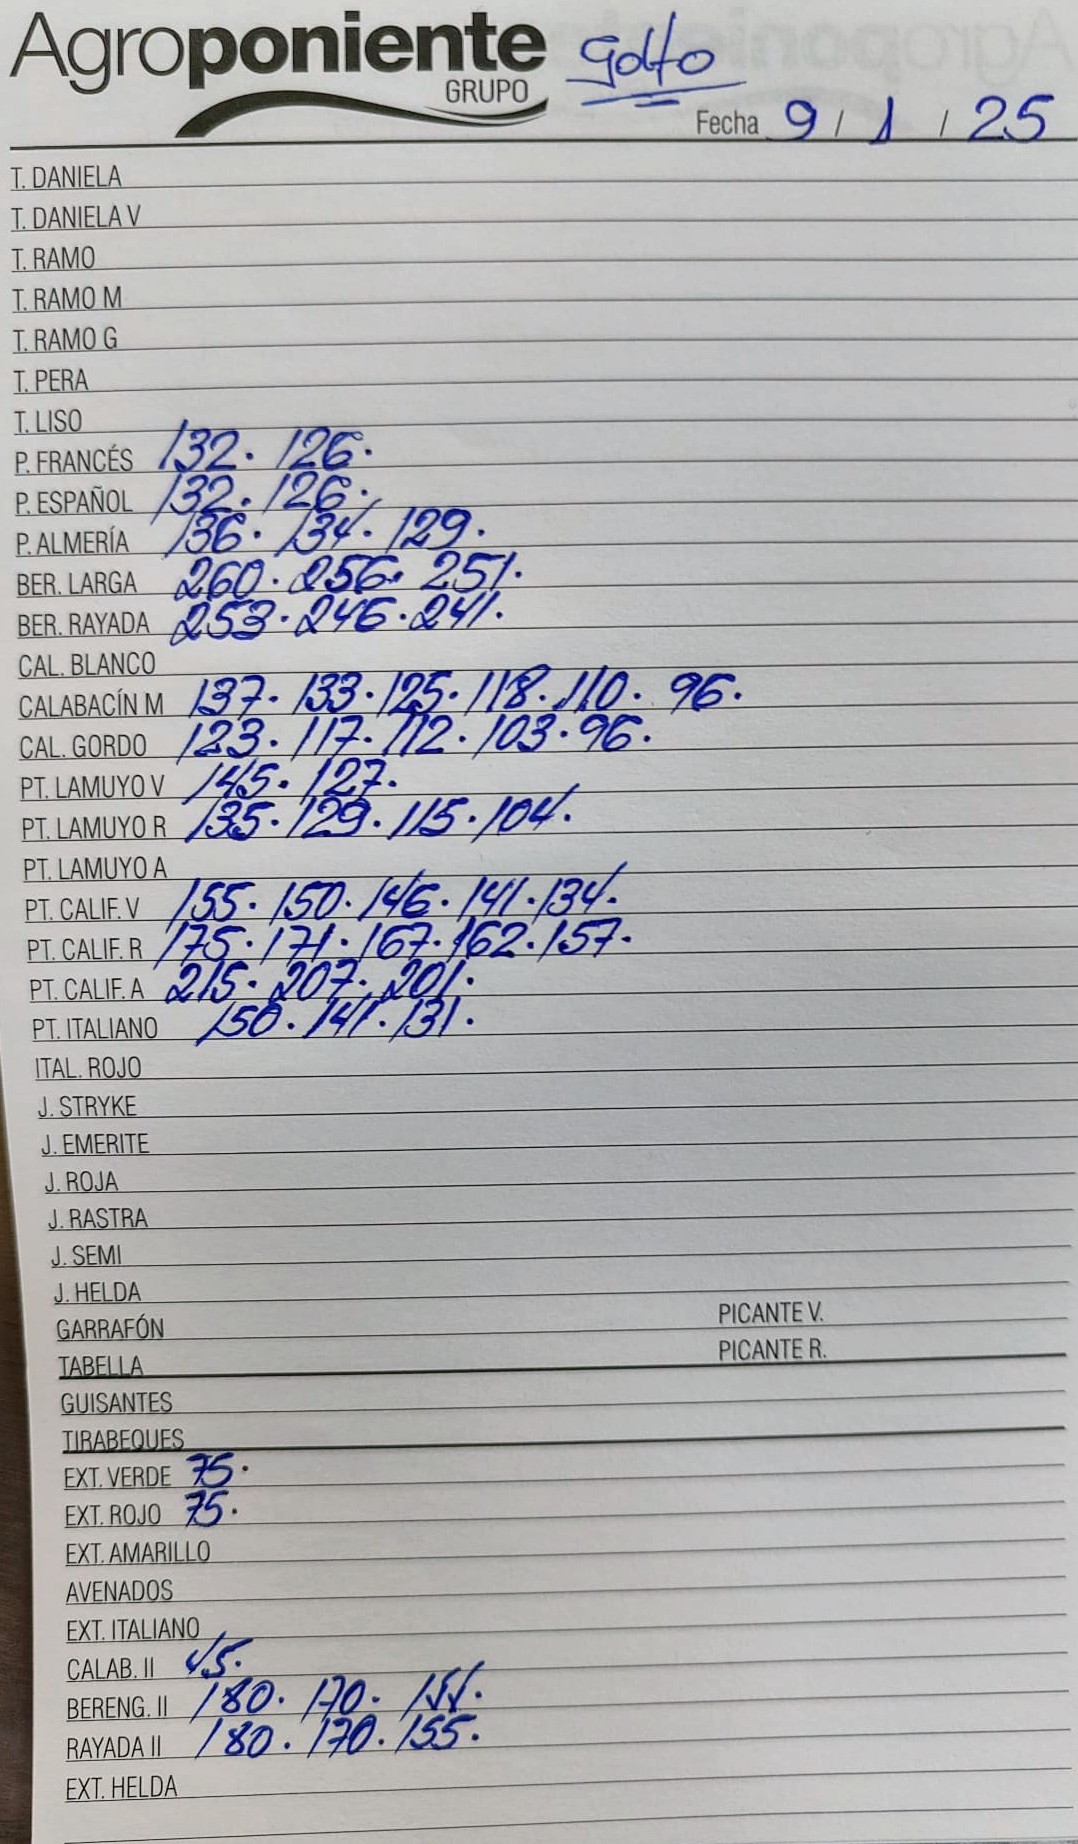 Agroponiente
GRUPO
Golfo
Fecha 9 / 1 / 25
T. DANIELA
T. DANIELA V
T. RAMO
T. RAMO M
T. RAMO G
T. PERA
T. LISO
P. FRANCÉS 132. 126.
P. ESPAÑOL 132. 126.
P. ALMERÍA 136. 134. 129.
BER. LARGA 260. 256. 251.
BER. RAYADA 253. 246. 241.
CAL. BLANCO
CALABACÍN M 137. 133. 125. 118. 110. 96.
CAL. GORDO 123. 117. 112. 103. 96.
PT. LAMUYO V 145. 127.
PT. LAMUYO R 135. 129. 115. 104.
PT. LAMUYO A
PT. CALIF. V 155. 150. 146. 141. 134.
PT. CALIF. R 175. 171. 167. 162. 157.
PT. CALIF. A 215. 207. 201.
PT. ITALIANO 150. 141. 131.
ITAL. ROJO
J. STRYKE
J. EMERITE
J. ROJA
J. RASTRA
J. SEMI
J. HELDA
GARRAFÓN PICANTE V.
TABELLA PICANTE R.
GUISANTES
TIRABEQUES
EXT. VERDE 75.
EXT. ROJO 75.
EXT. AMARILLO
AVENADOS
EXT. ITALIANO
CALAB. II 45.
BERENG. II 180. 170.
RAYADA II 180. 170. 155.
EXT. HELDA